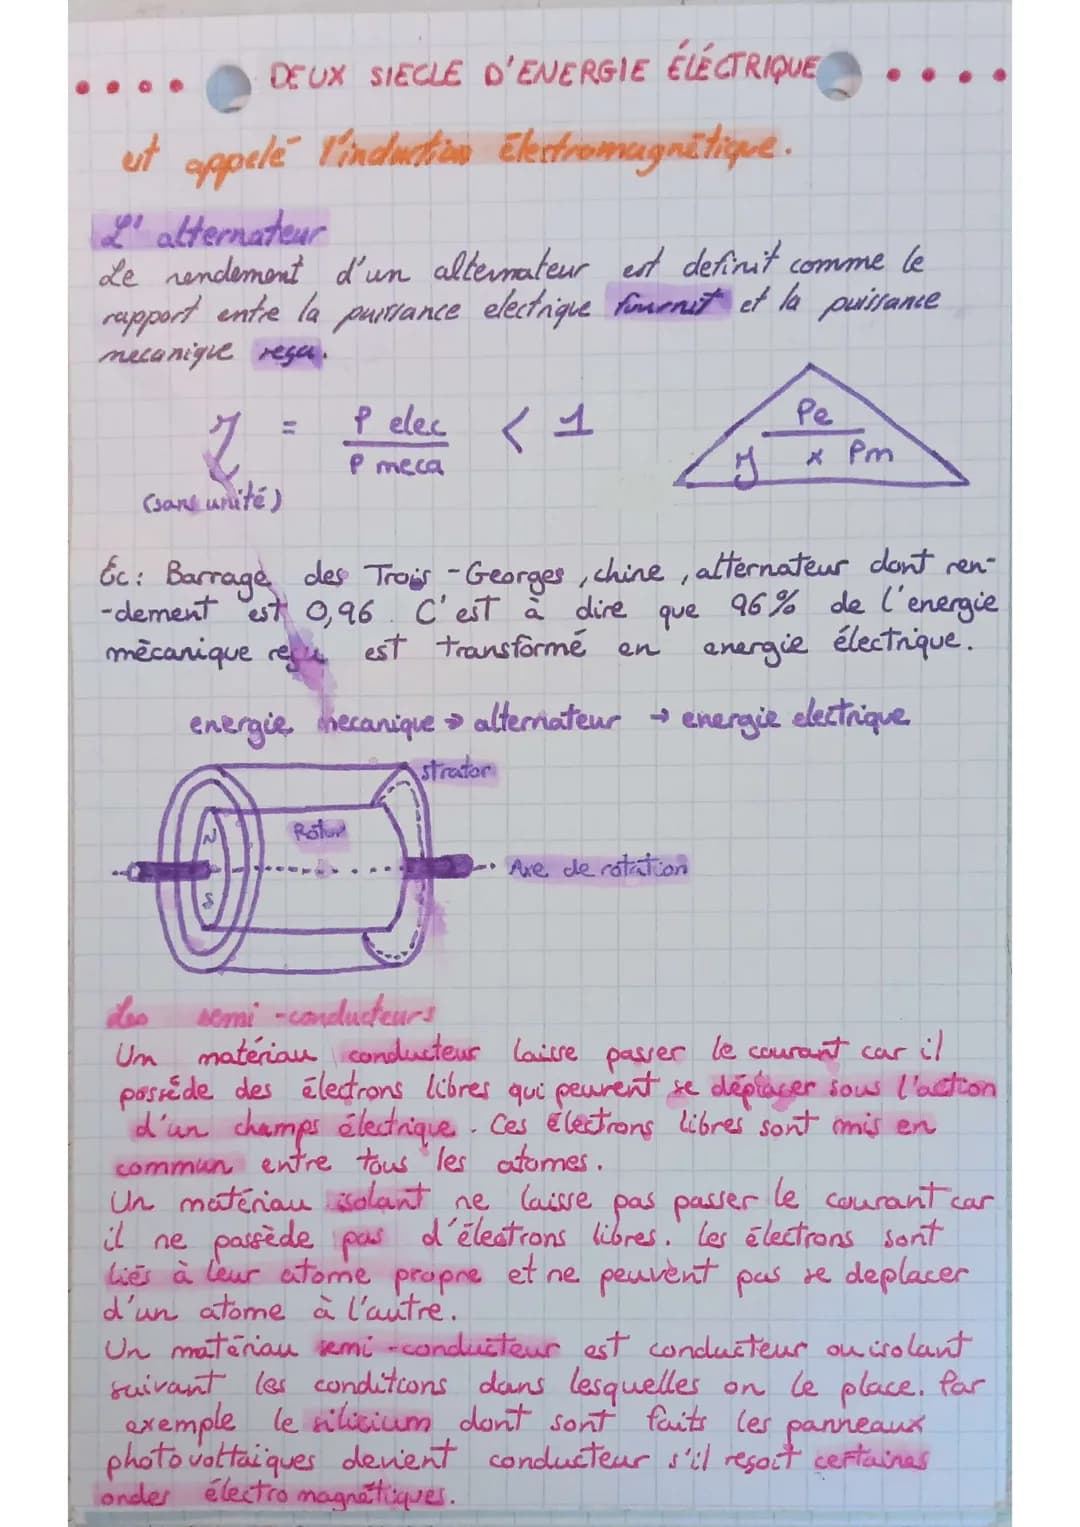 DEUX SIECLE D'ENERGIE ÉLÉCTRIQUE
est appelé l'induction électromagnétique.
L'alternateur
Le rendement d'un alternateur est definit comme le
rapport entre la puissance electrique fournit et la puissance
mecanique reçu.
η = P elec / P meca < 1
(sans unité)
Pe
η x Pm
Ec: Barrage des Trois-Georges, chine, alternateur dont ren-
-dement est 0,96. C'est à dire que 96% de l'energie
mècanique reçu est transformé en energie électrique.
energie mecanique → alternateur → energie electrique
strator
N
Rotor
Axe de rotation
S
Les semi-conducteurs
Un matériau conducteur laisse passer le courant car il
possède des électrons libres qui peuvent se déplacer sous l'action
d'un champs électrique. Ces électrons libres sont mis en
commun entre tous les atomes.
Un matériau isolant ne laisse pas passer le courant car
il ne possède pas d'électrons libres. Les électrons sont
liés à leur atome propre et ne peuvent pas se deplacer
d'un atome à l'autre.
Un matériau semi-conducteur est conducteur ou isolant
suivant les conditions dans lesquelles on le place. Par
exemple le silicium dont sont faits les panneaux
photovoltaïques devient conducteur s'il resoit certaines
ondes électromagnétiques.